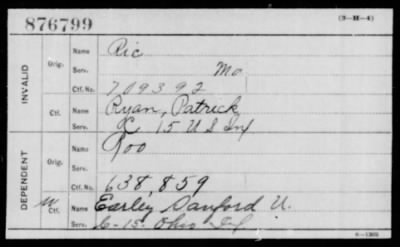 876799 (3-H-4)
INVALID
Orig. Name Ric
Serv. Mo.
Ctf. No. 709392
Ctf. Name Ryan, Patrick
Serv. K 15 U S Inf
DEPENDENT
Orig. Name Roo
Serv.
Ctf. No. 638,859
W Ctf. Name Earley Sanford U.
Serv. 6-15 Ohio Inf
6-1303